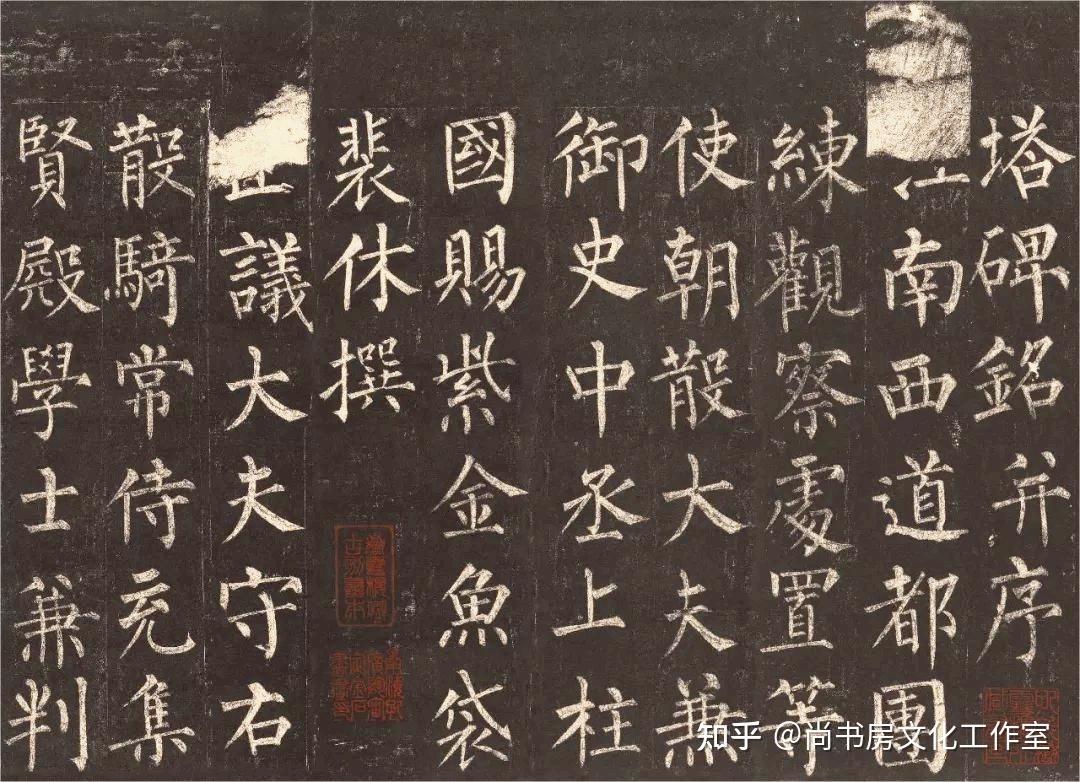 塔碑銘并序
江南西道都團
練觀察處置等
使朝散大夫兼
御史中丞上柱
國賜紫金魚袋
裴休撰
正議大夫守右
散騎常侍充集
賢殿學士兼判
知乎 @尚书房文化工作室